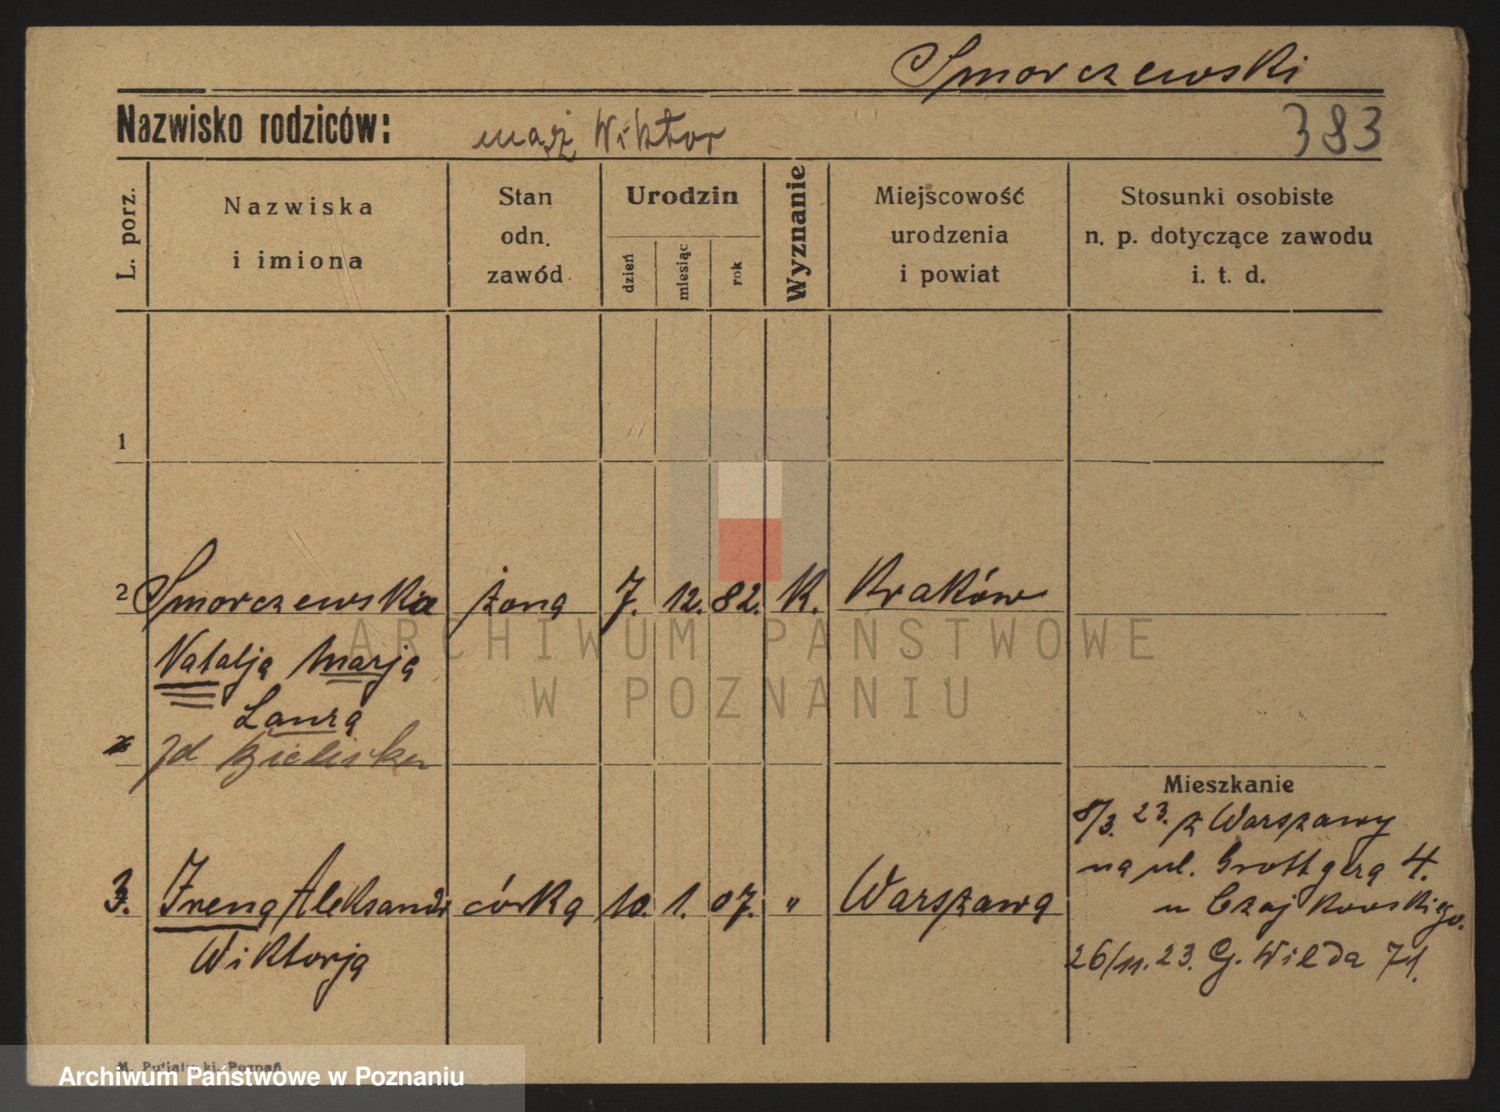 Smorczewski
Nazwisko rodziców: mąż Wiktor 383
L. porz.
Nazwiska
i imiona
Stan
odn.
zawód
Urodzin
dzień
miesiąc
rok
Wyznanie
Miejscowość
urodzenia
i powiat
Stosunki osobiste
n. p. dotyczące zawodu
i. t. d.
1
2 Smorczewska żona 7. 12. 82. K. Kraków
Natalja Marja
Laura
Mieszkanie
8/3. 23. z Warszawy
na ul. Grottgera 4.
u Czajkowskiego.
3. Irena Aleksandr córka 10. 1. 07. " Warszawa
Wiktorja
26/11. 23. G. Wilda 71.
Poznań
ARCHIWUM PAŃSTWOWE
W POZNANIU
Archiwum Państwowe w Poznaniu